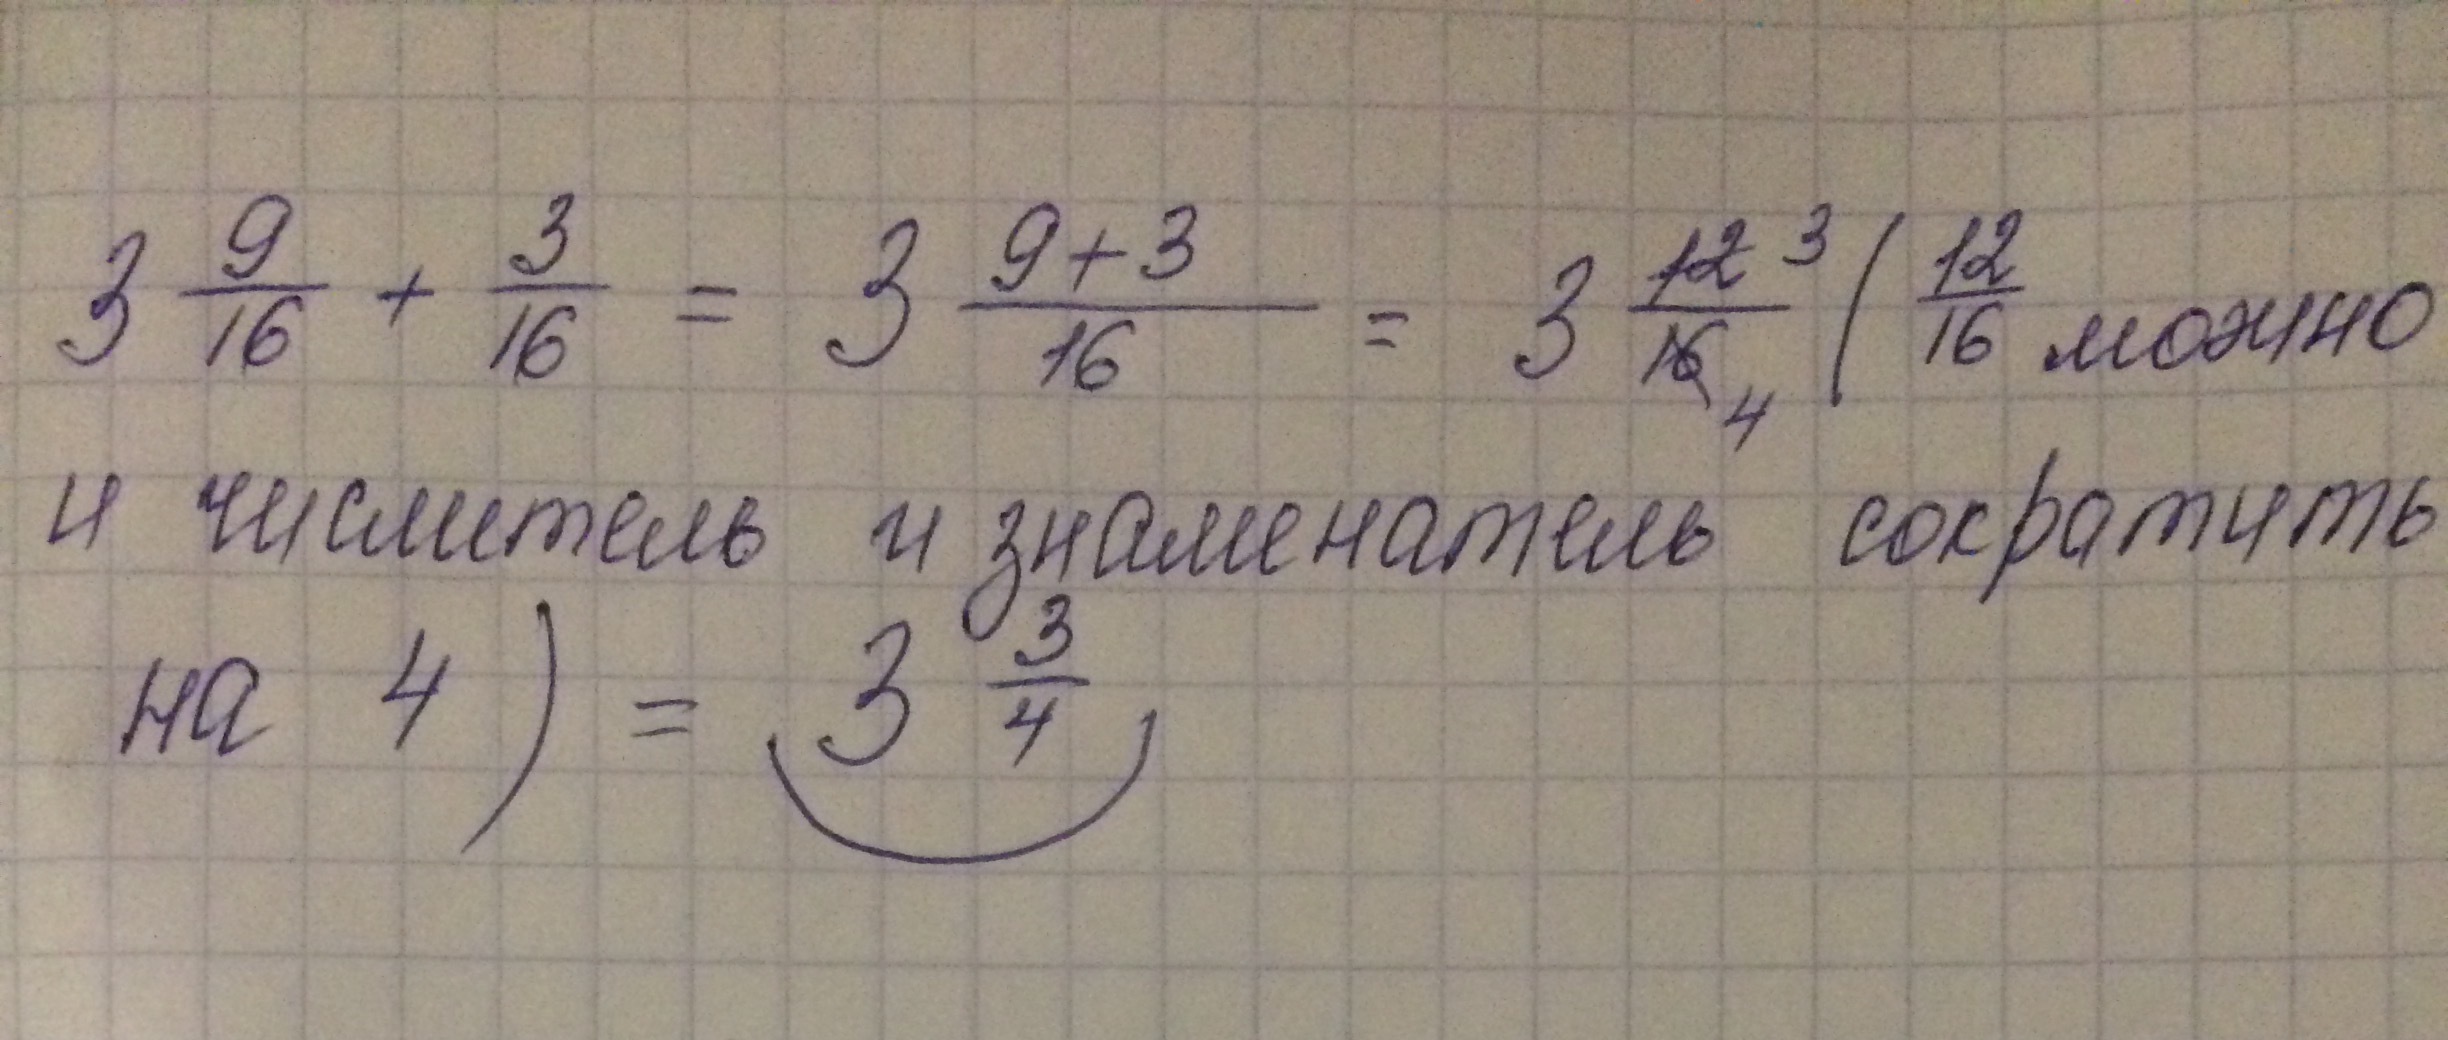 3 9/16 + 3/16 = 3 9+3/16 = 3 12/16 3 4 ( 12/16 можно
и числитель и знаменатель сократить
на 4 ) = 3 3/4